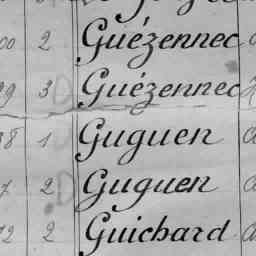 00 2 Guézennec
99 3 Guézennec
38 1 Guguen
7 2 Guguen
92 2 Guichard